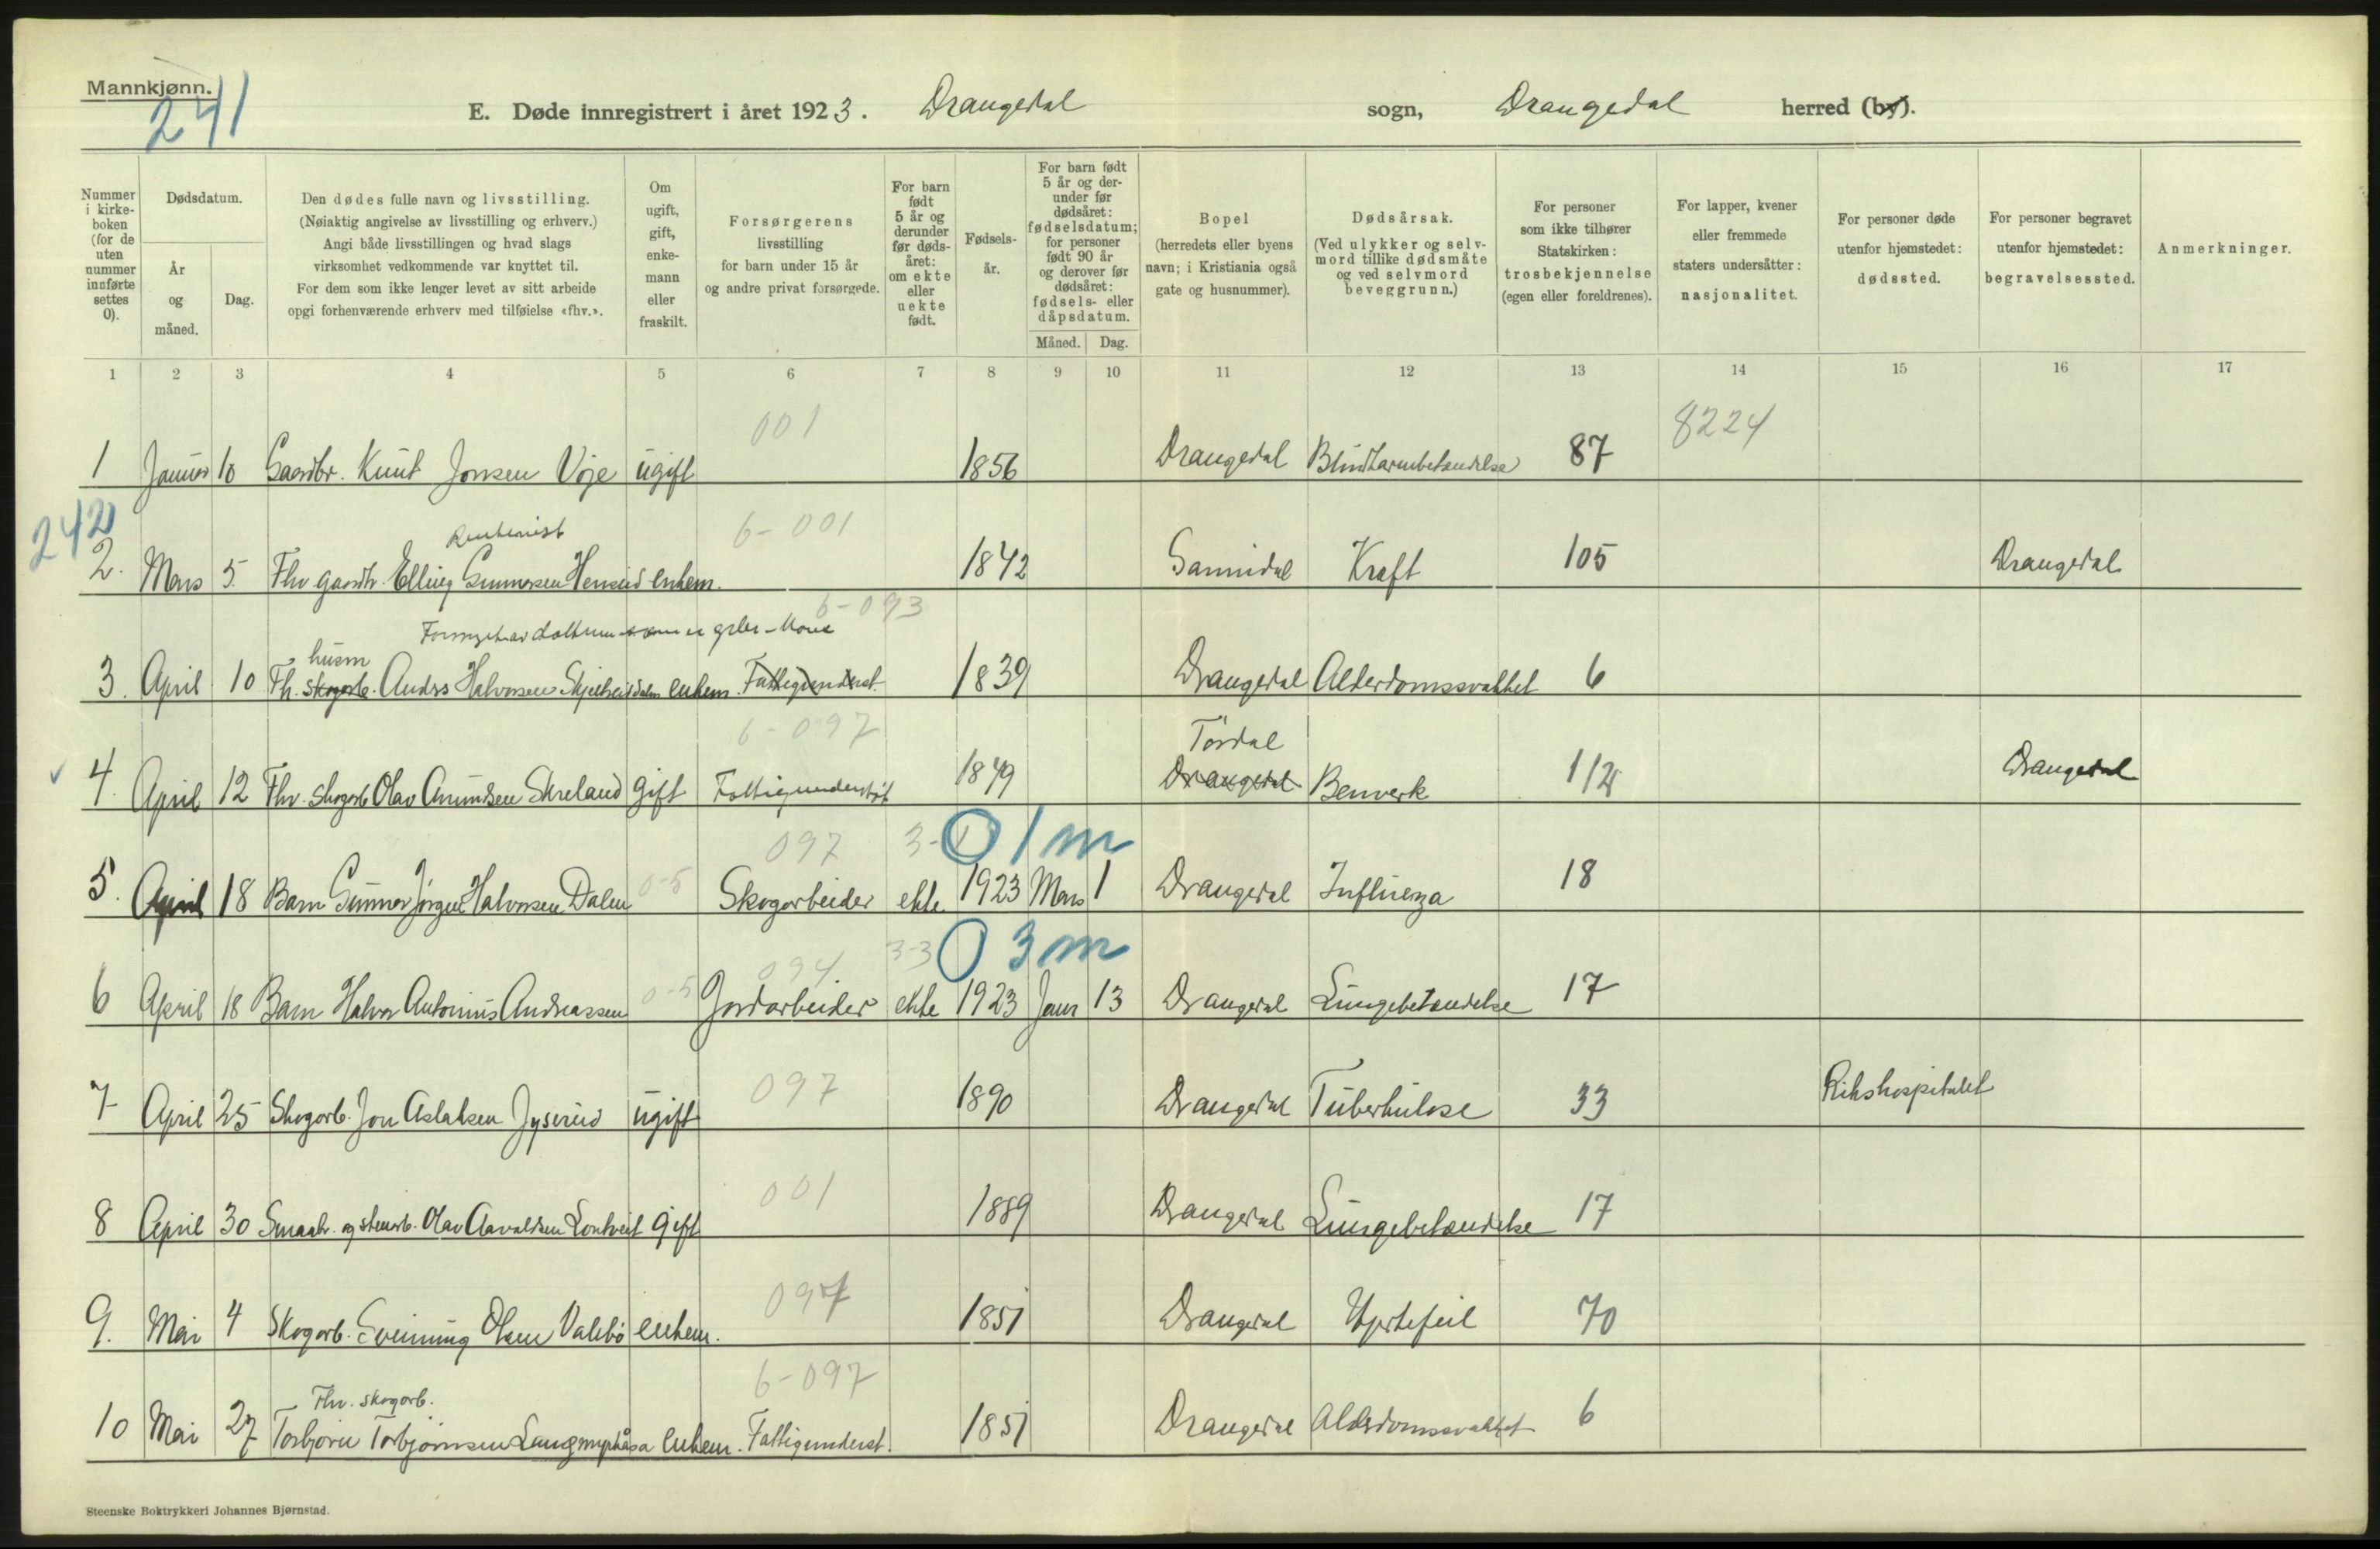 Mannkjønn.
241
E. Døde innregistrert i året 1923. Drangedal sogn, Drangedal herred (by).
Nummer i kirkeboken (for de uten nummer innførte settes 0).
Dødsdatum.
År og måned.
Dag.
Den dødes fulle navn og livsstilling.
(Nøiaktig angivelse av livsstilling og erhverv.)
Angi både livsstillingen og hvad slags
virksomhet vedkommende var knyttet til.
For dem som ikke lenger levet av sitt arbeide
opgi forhenværende erhverv med tilføielse «fhv.».
Om ugift, gift, enkemann eller fraskilt.
Forsørgerens livsstilling for barn under 15 år og andre privat forsørgede.
For barn født 5 år og derunder før dødsåret: om ekte eller uekte født.
Fødselsår.
For barn født 5 år og derunder før dødsåret: fødselsdatum; for personer født 90 år og derover før dødsåret: fødsels- eller dåpsdatum.
Måned. Dag.
Bopel (herredets eller byens navn; i Kristiania også gate og husnummer).
Dødsårsak. (Ved ulykker og selvmord tillike dødsmåte og ved selvmord beveggrunn.)
For personer som ikke tilhører Statskirken: trosbekjennelse (egen eller foreldrenes).
For lapper, kvener eller fremmede staters undersåtter: nasjonalitet.
For personer døde utenfor hjemstedet: dødssted.
For personer begravet utenfor hjemstedet: begravelsessted.
Anmerkninger.
1 2 3 4 5 6 7 8 9 10 11 12 13 14 15 16 17
001 8224
1 Januar 10 Gaardbr. Knut Jonsen Voje ugift 1856 Drangedal Blindtarmbetændelse 87
242
Rentenist 6-001
2. Mars 5 Fhv gaardbr. Elling Gunnarsen Henseid enkem. 1842 Sannidal Kræft 105 Drangedal
6-093
husm
3. April 10 Fh. skogarb. Anders Halvorsen enkem. Fattigunderst. 1839 Drangedal Alderdomssvakhet 6
6-097 Tørdal
4. April 12 Fhv. skogarb Olav Amundsen Skreland gift Fattigunderstøt 1849 Drangedal Benverk 112 Drangedal
097 3-1 0 1 m
5. April 18 Barn Gunnar Jørgen Halvorsen Dalen 0-5 Skogarbeider ekte 1923 Mars 1 Drangedal Influenza 18
094 3-3 0 3 m
6 April 18 Barn Halvor Antonius Andreassen 0-5 Jordarbeider ekte 1923 Janr 13 Drangedal Lungebetændelse 17
097
7 April 25 Skogarb. Jon Aslaksen Jyserud ugift 1890 Drangedal Tuberkulose 33 Rikshospitalet
001
8 April 30 Smaabr. og stenarb. Olav Aavaldsen Lontveit gift 1889 Drangedal Lungebetændelse 17
097
9. Mai 4 Skogarb. Svenning Olsen Valebø enkem. 1851 Drangedal Hjertefeil 70
6-097
Fhv. skogarb.
10 Mai 27 Torbjørn Torbjørnsen Langmyrhåsa enkem. Fattigunderst. 1851 Drangedal Alderdomssvakhet 6
Steenske Boktrykkeri Johannes Bjørnstad.